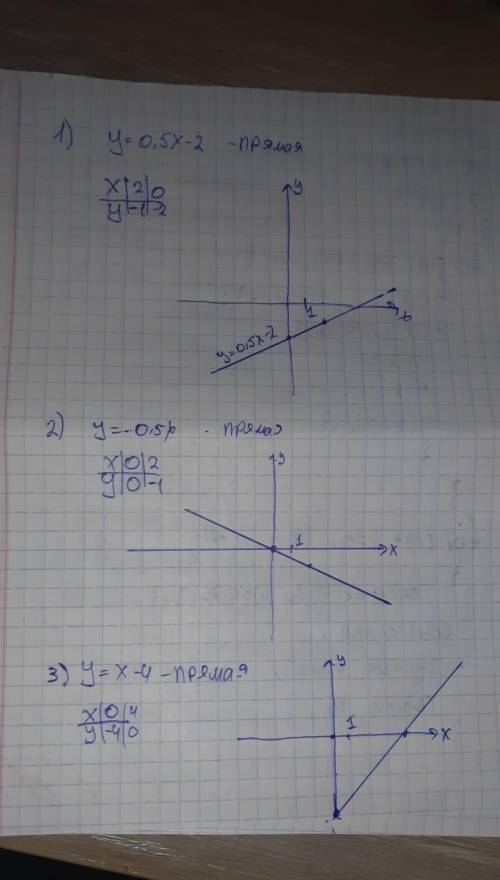 1) y=0,5x-2 -прямая
x 2 0
y -1 -2
y
1
x
y=0,5x-2
2) y=-0,5x - прямая
x 0 2
y 0 -1
y
1
x
3) y=x-4-прямая
x 0 4
y -4 0
y
1
x